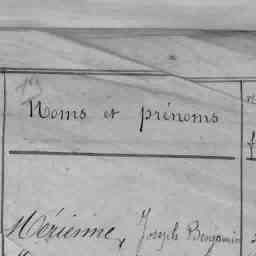 Noms et prénoms
Mérienne, Joseph Benjamin